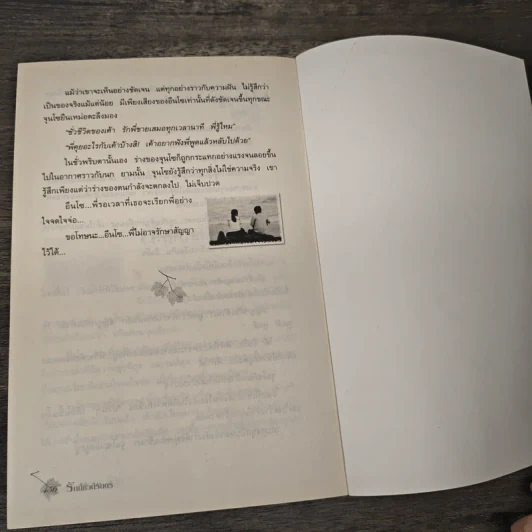 แม้ว่าเขาจะเห็นอย่างชัดเจน แต่ทุกอย่างราวกับความฝัน ไม่รู้สึกว่า
เป็นของจริงแม้แต่น้อย มีเพียงเสียงของอึนโซเท่านั้นที่ดังชัดเจนขึ้นทุกขณะ
จุนโซยืนเหม่อตะลึงมอง
"ชั่วชีวิตของเค้า รักพี่ชายเสมอทุกเวลานาที พี่รู้ไหม"
"พี่คุยอะไรกับเค้าบ้างสิ เค้าอยากฟังพี่พูดแล้วหลับไปด้วย"
ในชั่วพริบตานั้นเอง ร่างของจุนโซก็ถูกกระแทกอย่างแรงจนลอยขึ้น
ไปในอากาศราวกับนก ยามนั้น จุนโซยังรู้สึกว่าทุกสิ่งไม่ใช่ความจริง เขา
รู้สึกเพียงแต่ว่าร่างของตนกำลังจะตกลงไป ไม่เจ็บปวด
อึนโซ...พี่รอเวลาที่เธอจะเรียกพี่อย่าง
ใจจดใจจ่อ...
ขอโทษนะ...อึนโซ...พี่ไม่อาจรักษาสัญญา
ไว้ได้...